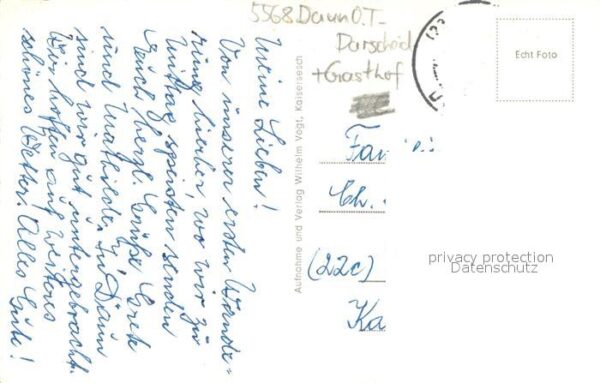 5568 Daun O.T-
Darscheid
+Gasthof
Echt Foto
Meine Lieben!
Von unserer ersten Wande-
rung hierher, wo wir zu
Mittag speisten senden
Euch herzl. Grüße Grete
und Mathilde. In Daun
sind wir gut untergebracht.
Wir hoffen auf weiteres
schönes Wetter! Alles Gute!
Aufnahme und Verlag Wilhelm Vogt, Kaisersesch
Fam
Ch.
(22c)
Ka
privacy protection
Datenschutz